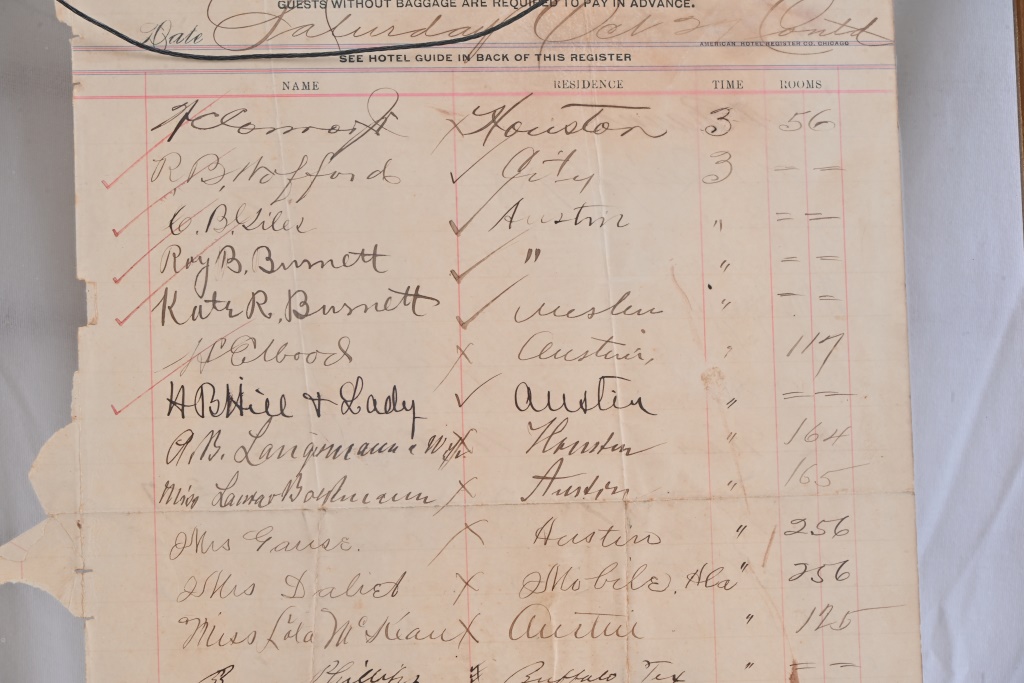 GUESTS WITHOUT BAGGAGE ARE REQUIRED TO PAY IN ADVANCE.
Date Saturday Oct 2 Contd
AMERICAN HOTEL REGISTER CO. CHICAGO
SEE HOTEL GUIDE IN BACK OF THIS REGISTER
NAME RESIDENCE TIME ROOMS
X Houston 3 56
R. B. Wofford ✓ City 3 = =
C. B. Giles ✓ Austin " = =
Roy B. Burnett ✓ " " = =
Kate R. Burnett ✓ " = =
X Austin, " 117
H B Hill & Lady ✓ Austin " = =
A. B. Langermann & Wife X Houston " 164
Miss Laura X Austin " 165
Mrs Gause. X Austin " 256
Mrs X Mobile, Ala " 256
Miss Lola McKean X Austin " 125
Phillips Buffalo Tex " = =